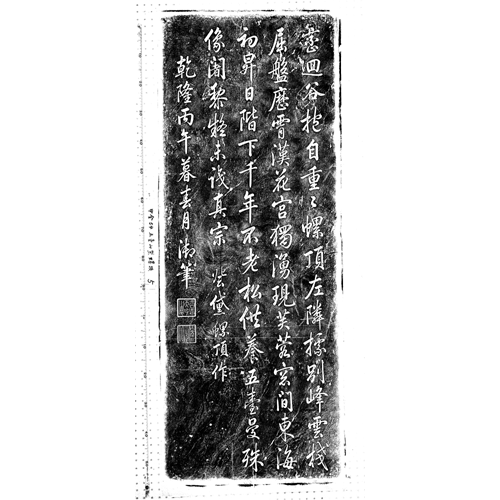 峦迴谷抱自重重螺頂左隣據別峰雲棧
屈盤歷霄漢花宫獨湧現芙蓉窓間東海
初昇日階下千年不老松供養五臺曼殊
像闍黎疑未識真宗 登黛螺頂作
乾隆丙午暮春月御筆